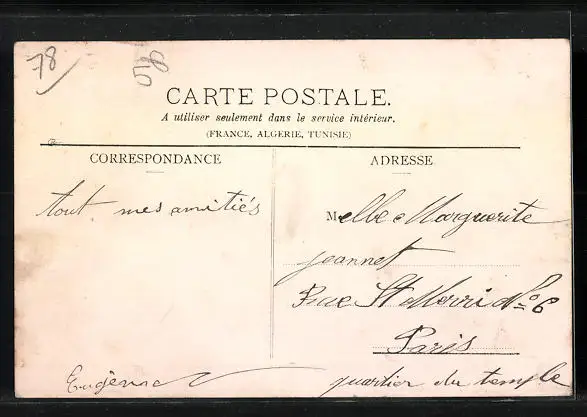 78
58
CARTE POSTALE.
A utiliser seulement dans le service intérieur.
(FRANCE, ALGERIE, TUNISIE)
CORRESPONDANCE
tout mes amitiés
Eugénia
ADRESSE
Melle Marguerite
Jeannet
Rue St Merri No 6
Paris
quartier du temple